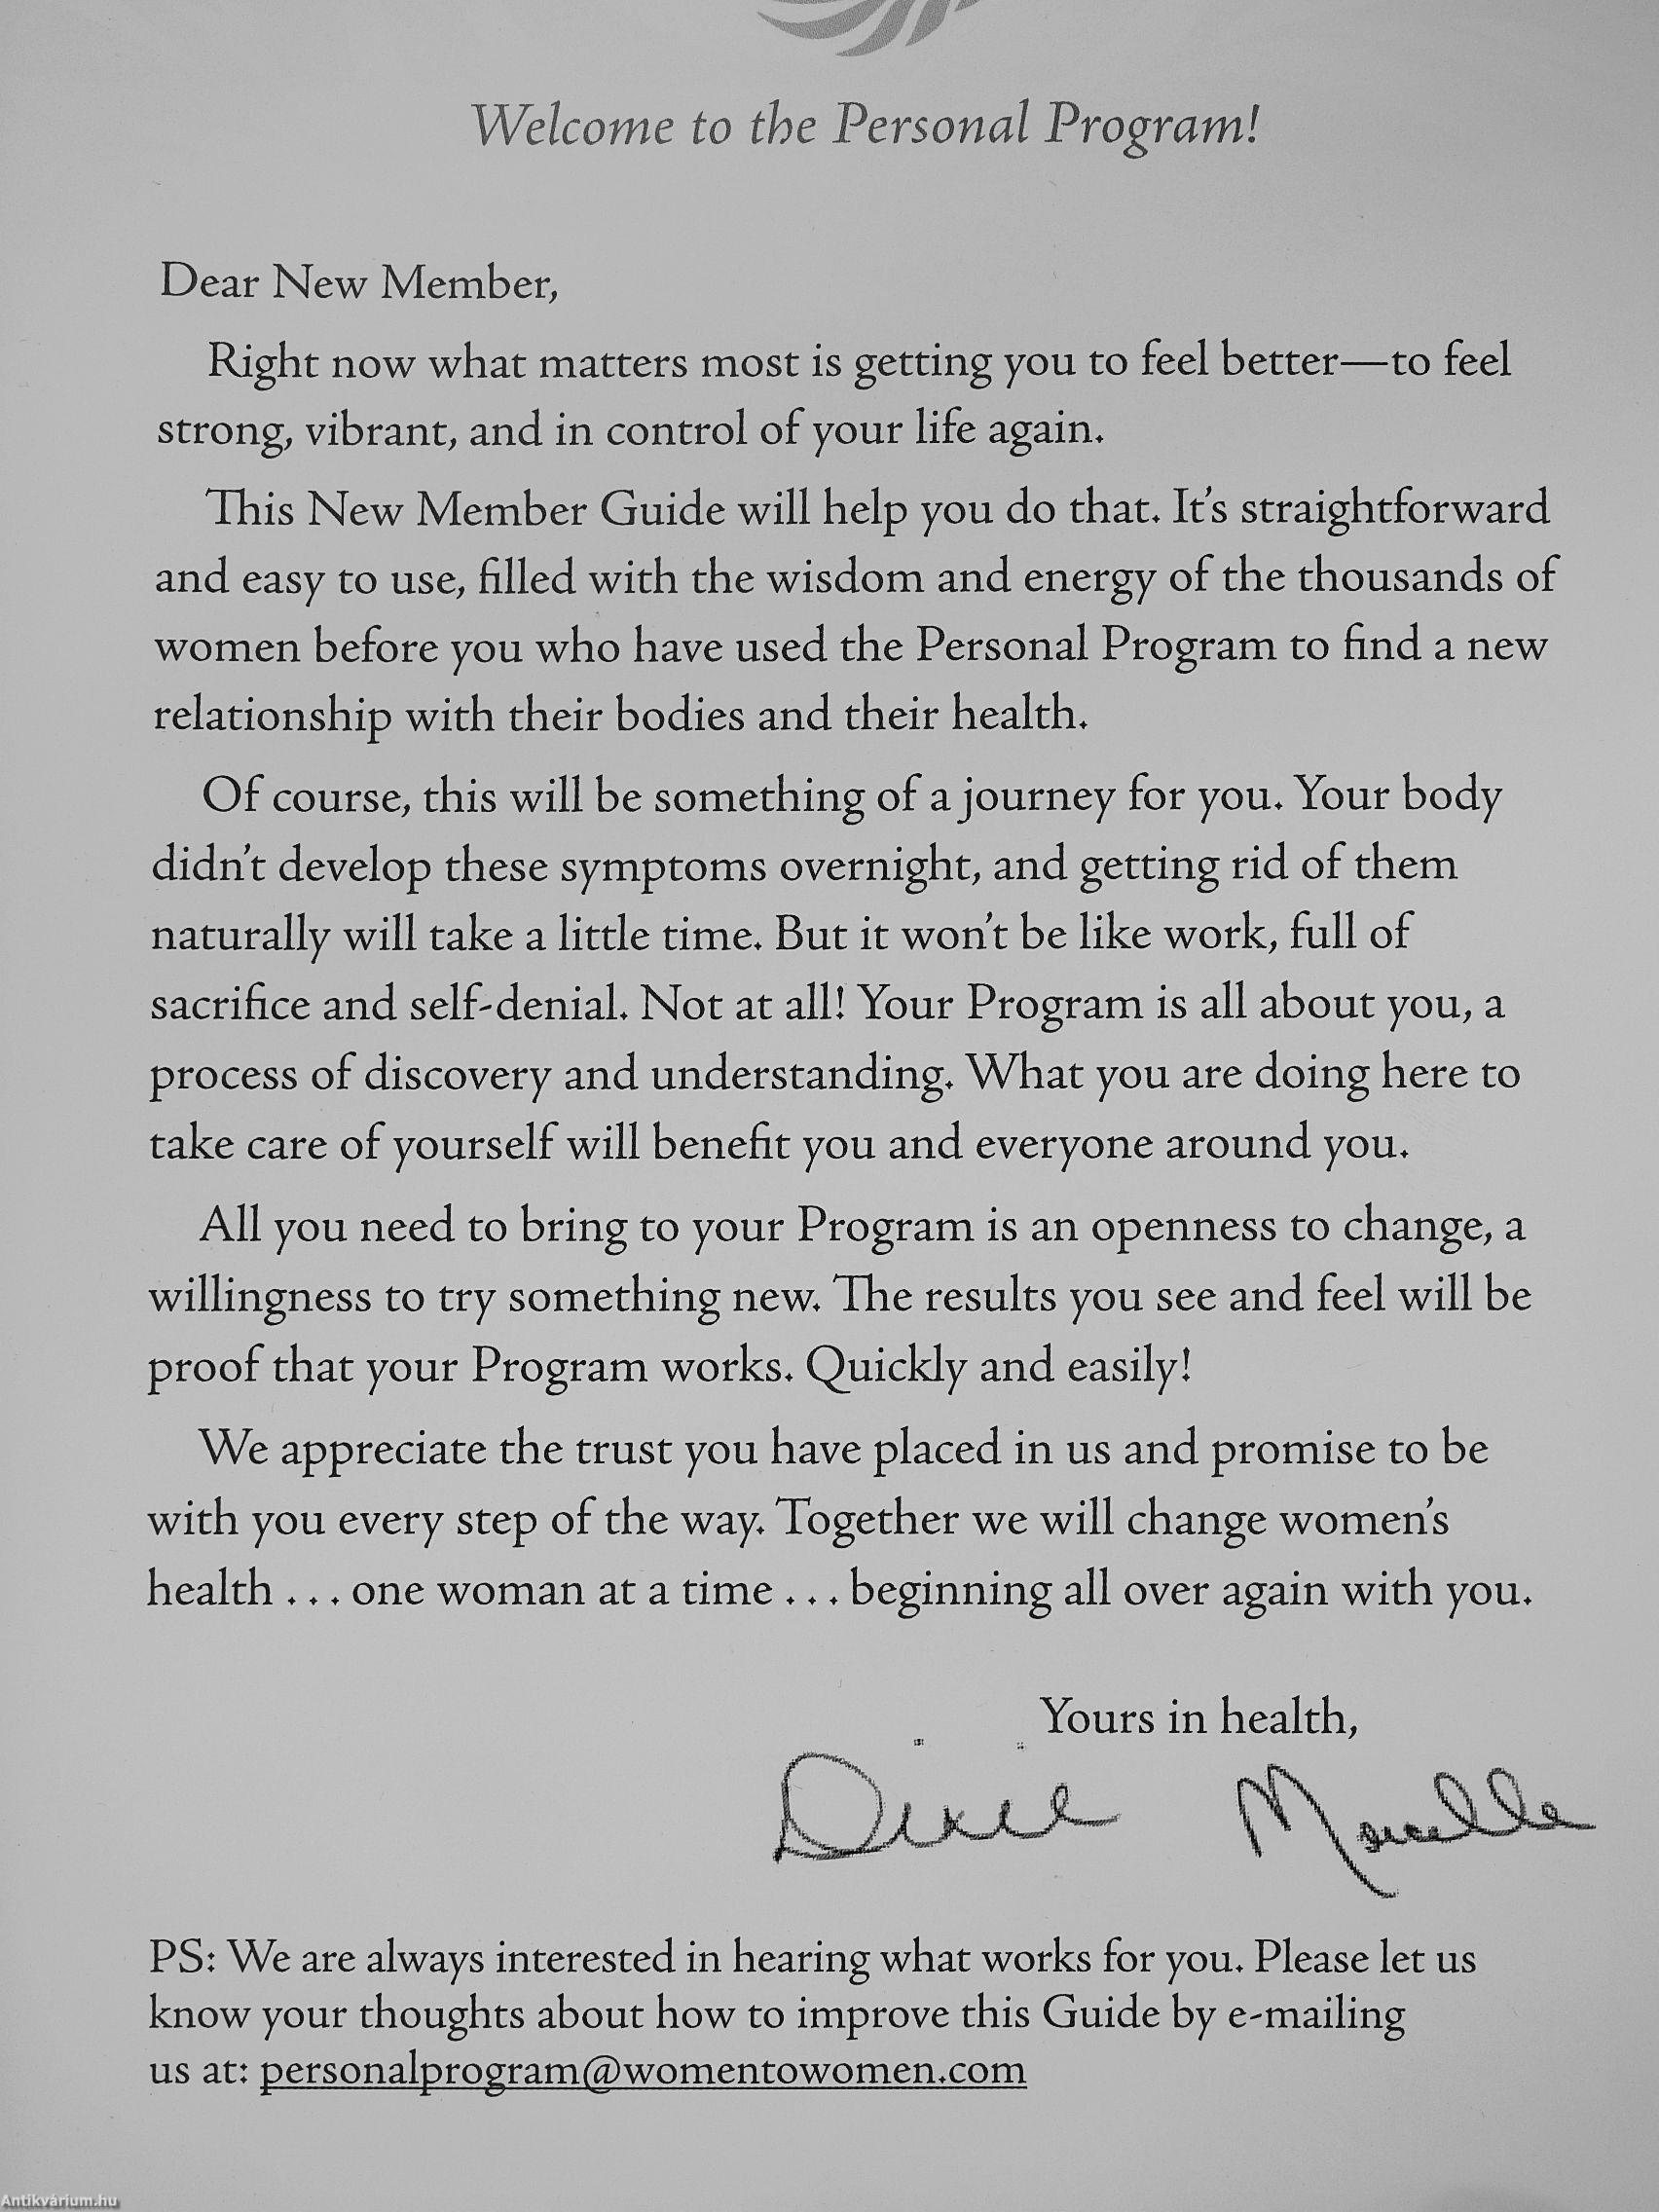 Welcome to the Personal Program!
Dear New Member,
Right now what matters most is getting you to feel better—to feel
strong, vibrant, and in control of your life again.
This New Member Guide will help you do that. It's straightforward
and easy to use, filled with the wisdom and energy of the thousands of
women before you who have used the Personal Program to find a new
relationship with their bodies and their health.
Of course, this will be something of a journey for you. Your body
didn't develop these symptoms overnight, and getting rid of them
naturally will take a little time. But it won't be like work, full of
sacrifice and self-denial. Not at all! Your Program is all about you, a
process of discovery and understanding. What you are doing here to
take care of yourself will benefit you and everyone around you.
All you need to bring to your Program is an openness to change, a
willingness to try something new. The results you see and feel will be
proof that your Program works. Quickly and easily!
We appreciate the trust you have placed in us and promise to be
with you every step of the way. Together we will change women's
health . . . one woman at a time . . . beginning all over again with you.
Yours in health,
Dixie Marcelle
PS: We are always interested in hearing what works for you. Please let us
know your thoughts about how to improve this Guide by e-mailing
us at: personalprogram@womentowomen.com
Antikvárium.hu